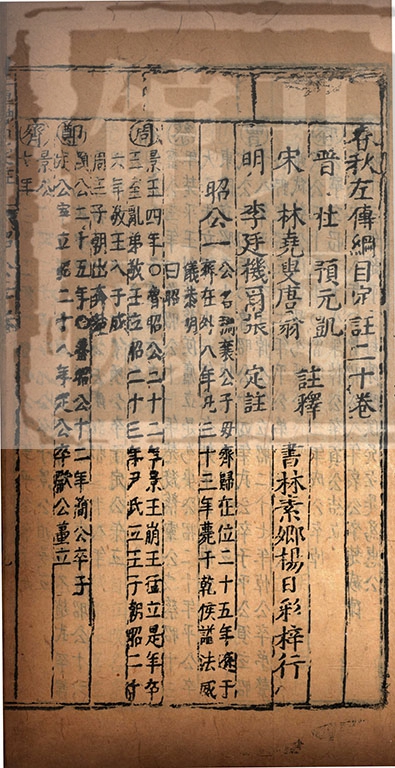 春秋左傳綱目定註二十卷
晉 杜 預元凱
宋 林堯叟唐翁 註釋
明 李廷機爾張 定註
書林素卿楊日彩梓行
昭公一
公名裯襄公子母齊歸在位二十五年遜于
齊在外八年凡三十三年薨于乾侯謚法威
儀恭明
曰昭
周 景王四年○魯昭公二十二年景王崩王猛立是年卒
王室亂弟敬王位昭二十三年尹氏立王子朝昭二十
六年敬王入于成
周王子朝出奔楚
鄭 簡公二十五年○魯昭公十二年簡公卒子
定公寧立昭二十八年定公卒獻公蠆立
齊 景公
七年